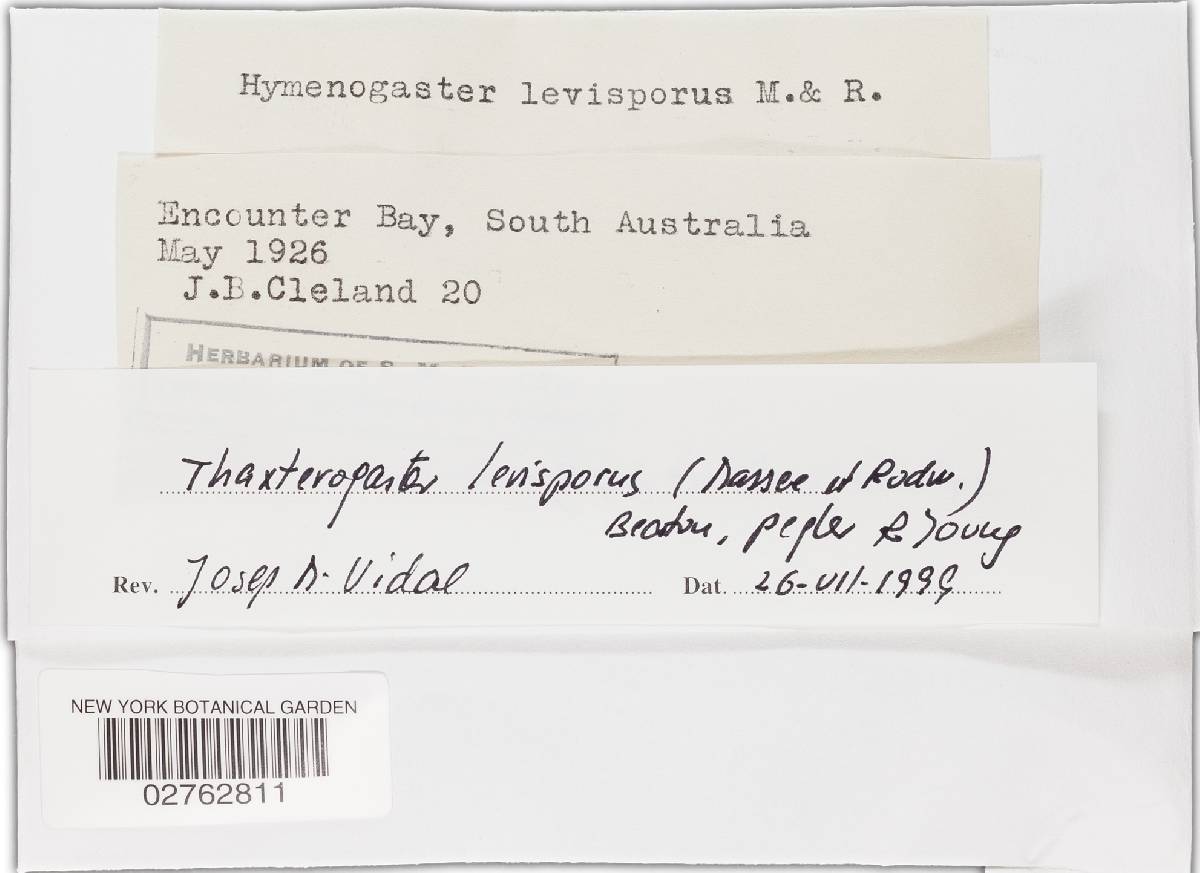 Hymenogaster levisporus M.& R.
Encounter Bay, South Australia
May 1926
J.B.Cleland 20
HERBARIUM OF
Thaxterogaster levisporus (Massee et Rodw.)
Beaton, Pegler & Young
Rev. Josep M. Vidal Dat. 26-VII-1999
NEW YORK BOTANICAL GARDEN
02762811